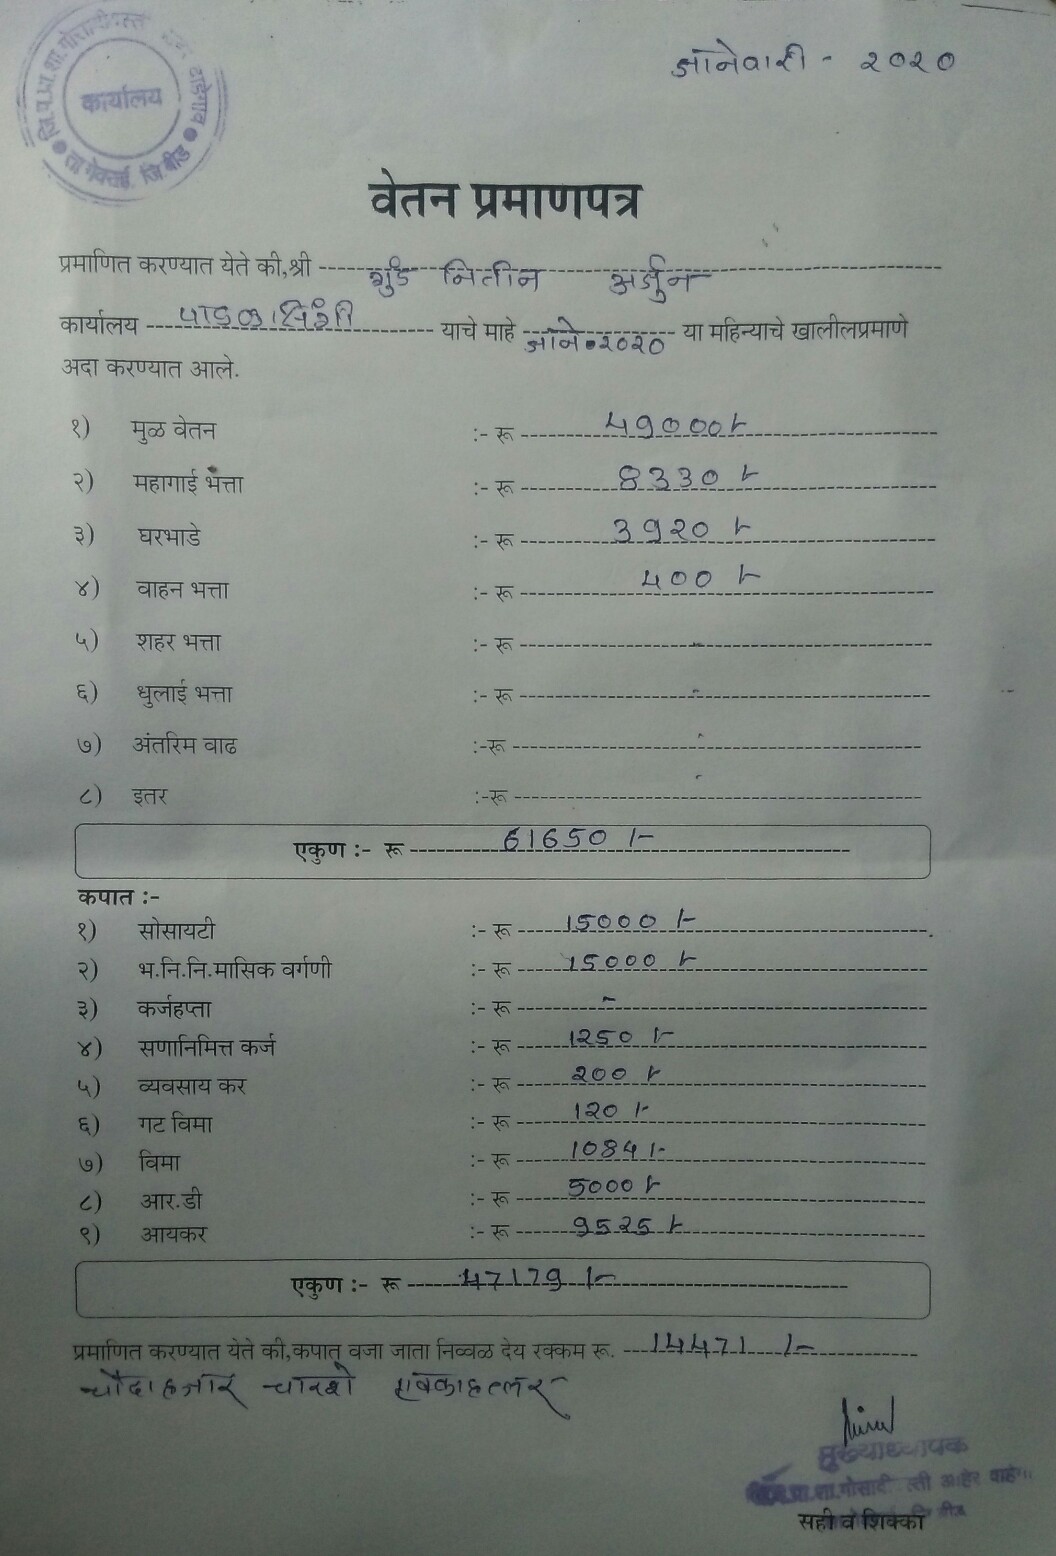 कार्यालय
जानेवारी - २०२०
वेतन प्रमाणपत्र
प्रमाणित करण्यात येते की,श्री नितीन अर्जुन
कार्यालय याचे माहे जाने.२०२० या महिन्याचे खालीलप्रमाणे
अदा करण्यात आले.
१) मुळ वेतन :- रू 49000/-
२) महागाई भत्ता :- रू 8330/-
३) घरभाडे :- रू 3920/-
४) वाहन भत्ता :- रू 400/-
५) शहर भत्ता :- रू -
६) धुलाई भत्ता :- रू -
७) अंतरिम वाढ :-रू -
८) इतर :-रू -
एकुण :- रू 61650/-
कपात :-
१) सोसायटी :- रू 15000/-
२) भ.नि.नि.मासिक वर्गणी :- रू 15000/-
३) कर्जहप्ता :- रू -
४) सणानिमित्त कर्ज :- रू 1250/-
५) व्यवसाय कर :- रू 200/-
६) गट विमा :- रू 120/-
७) विमा :- रू 1084/-
८) आर.डी :- रू 5000/-
९) आयकर :- रू 9525/-
एकुण :- रू 47179/-
प्रमाणित करण्यात येते की,कपात वजा जाता निव्वळ देय रक्कम रू. 14471/-
चौदा हजार चारशे एक्काहत्तर
मुख्याध्यापक
सही व शिक्का